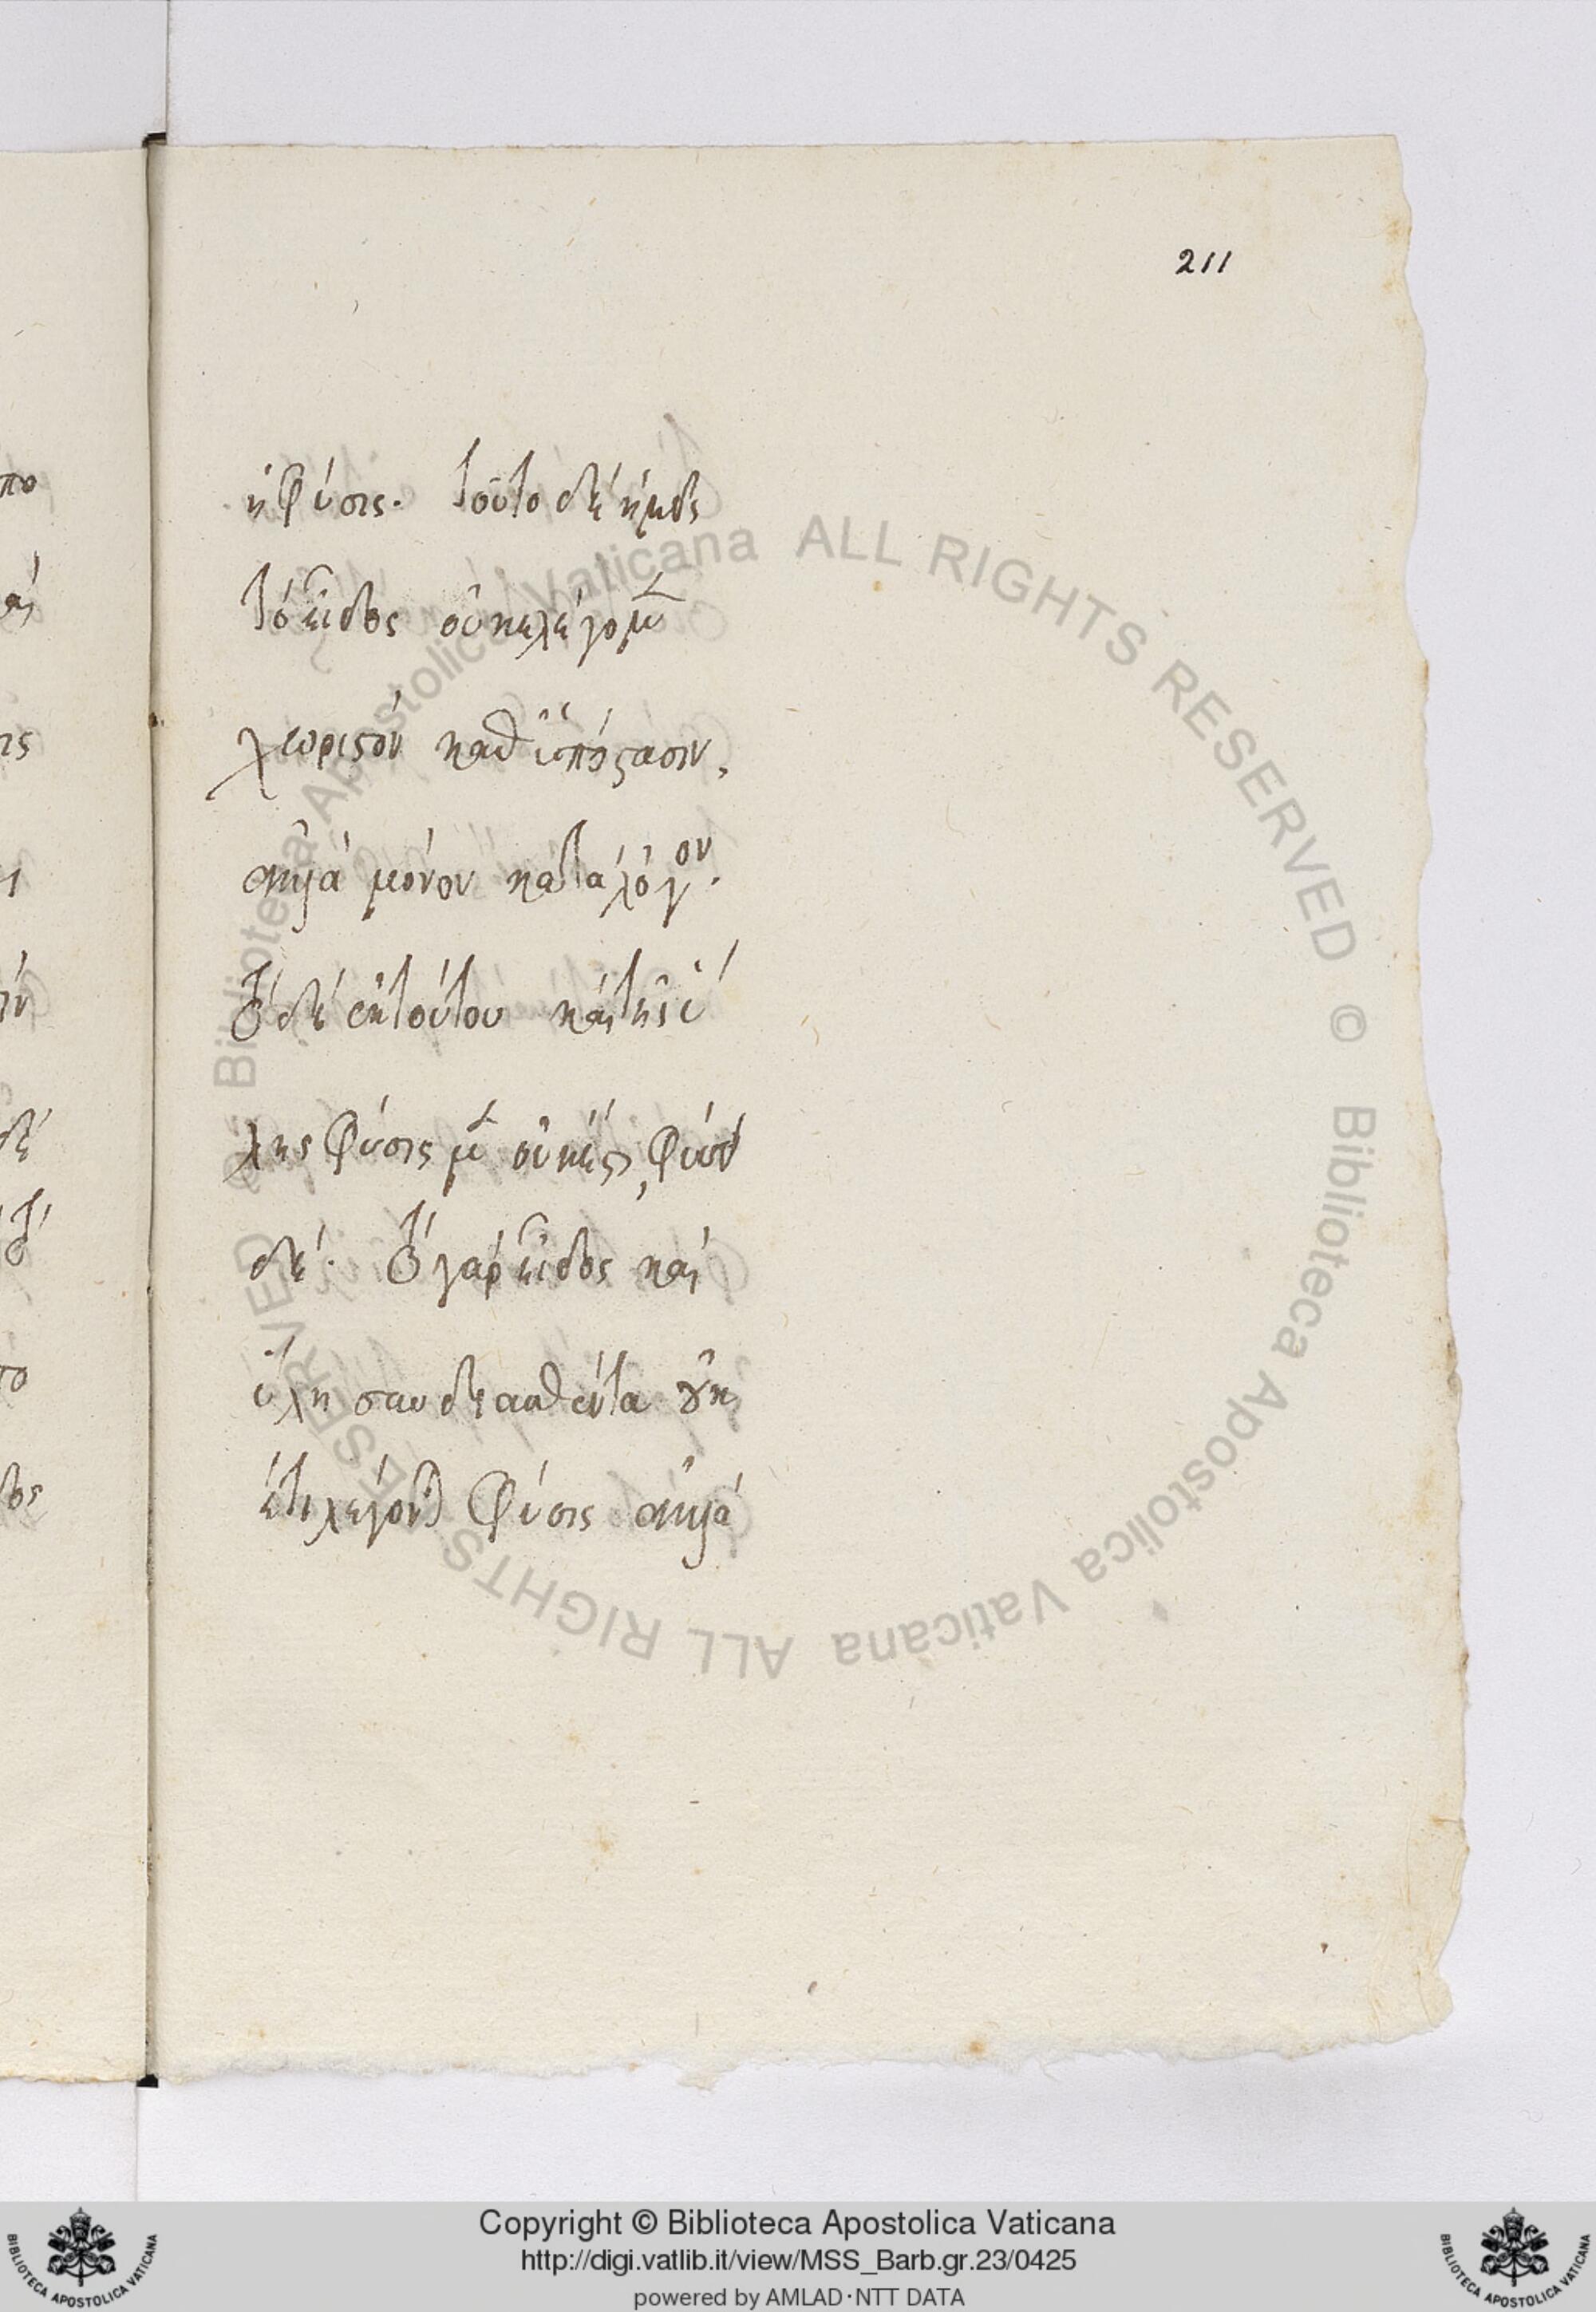 211
ἡ φύσις. τοῦτο δὲ ἡμεῖς
τὸ εἶδος οὐ λέγομεν
χωριστὸν καθ' ὑπόστασιν,
ἀλλὰ μόνον κατὰ λόγον.
τὸ δὲ ἐκ τούτου καὶ τῆς ὕ
λης φύσις μὲν οὐκ ἔστι, φύσει
δέ. τὸ γὰρ εἶδος καὶ
ὕλη συνδυασθέντα οὐκ
ἔτι λέγονται φύσις ἀλλὰ
πο
δὲ
τὸ
Biblioteca Apostolica Vaticana ALL RIGHTS RESERVED © Biblioteca Apostolica Vaticana ALL RIGHTS RESERVED ©
Copyright © Biblioteca Apostolica Vaticana
http://digi.vatlib.it/view/MSS_Barb.gr.23/0425
powered by AMLAD·NTT DATA
BIBLIOTECA APOSTOLICA VATICANA
BIBLIOTECA APOSTOLICA VATICANA